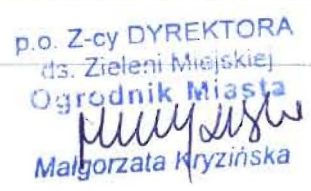 p.o. Z-cy DYREKTORA
ds. Zieleni Miejskiej
Ogrodnik Miasta
Małgorzata Kryzińska